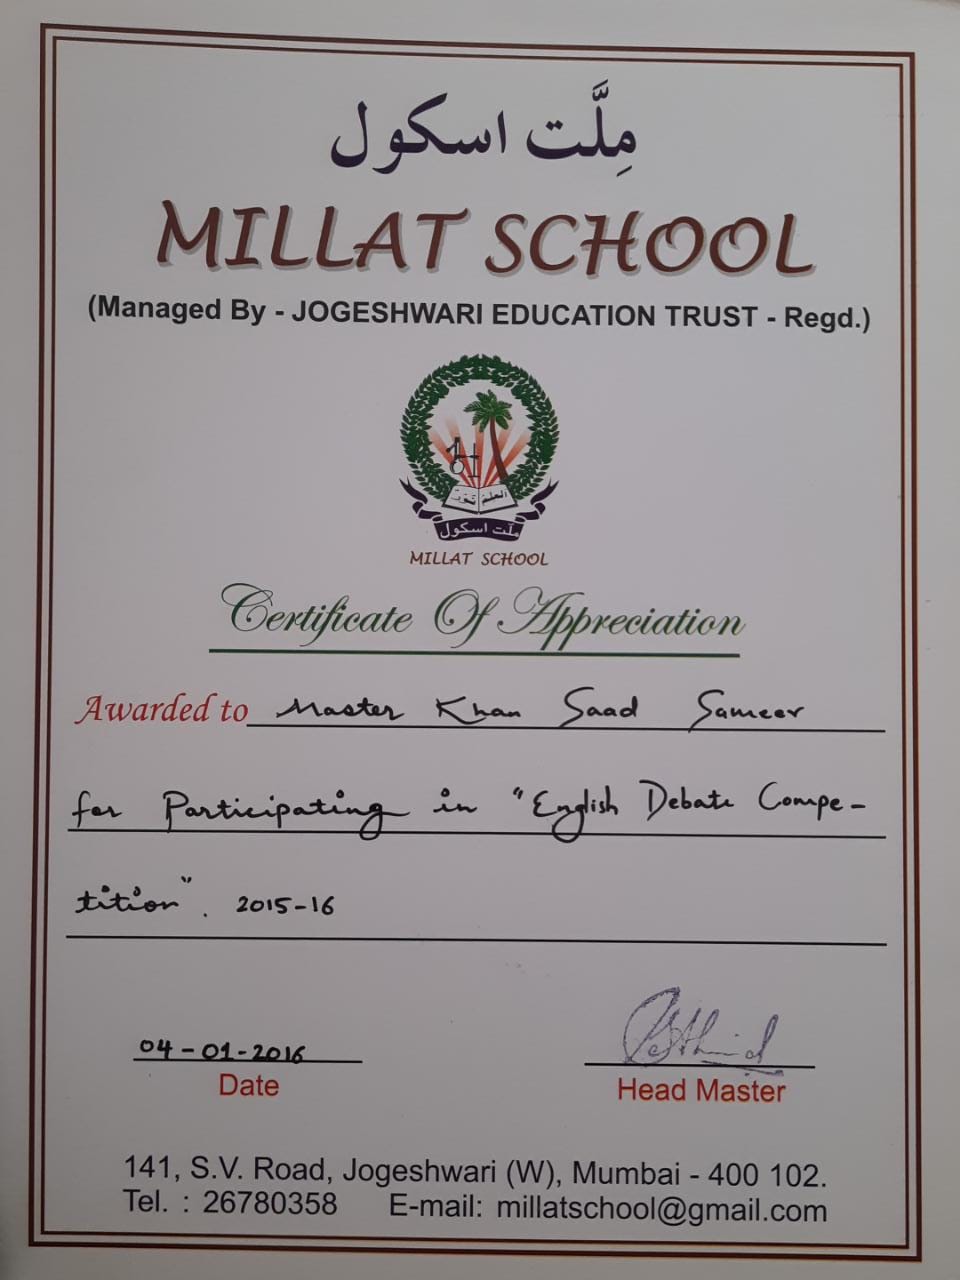 مِلَّت اسکول
MILLAT SCHOOL
(Managed By - JOGESHWARI EDUCATION TRUST - Regd.)
ملّت اسکول
MILLAT SCHOOL
Certificate Of Appreciation
Awarded to Master Khan Saad Sameer
for Participating in "English Debate Compe-
tition". 2015-16
04-01-2016
Date
Head Master
141, S.V. Road, Jogeshwari (W), Mumbai - 400 102.
Tel. : 26780358 E-mail: millatschool@gmail.com